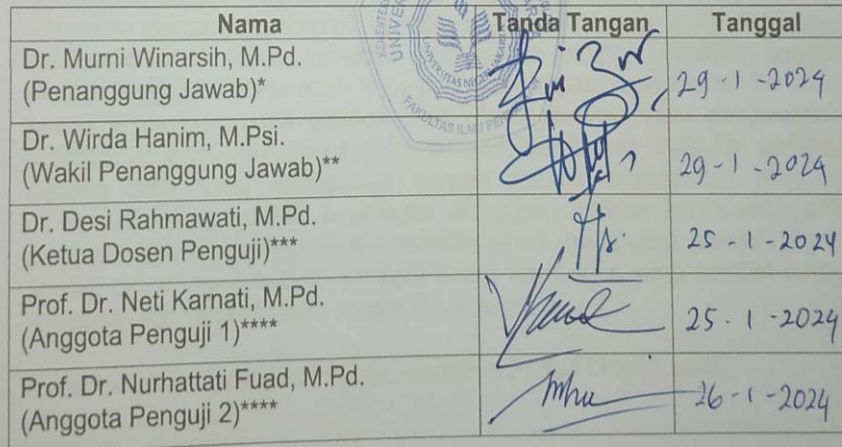 Nama Tanda Tangan Tanggal
Dr. Murni Winarsih, M.Pd.
(Penanggung Jawab)* 29-1-2024
Dr. Wirda Hanim, M.Psi.
(Wakil Penanggung Jawab)** 29-1-2024
Dr. Desi Rahmawati, M.Pd.
(Ketua Dosen Penguji)*** 25-1-2024
Prof. Dr. Neti Karnati, M.Pd.
(Anggota Penguji 1)**** 25-1-2024
Prof. Dr. Nurhattati Fuad, M.Pd.
(Anggota Penguji 2)**** 26-1-2024